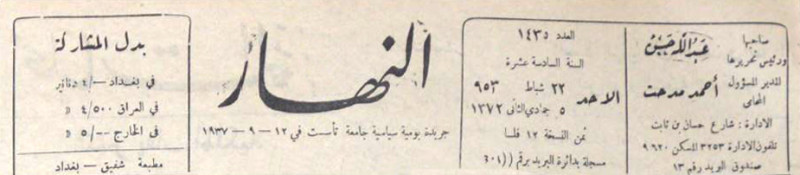 صاحبها
ورئيس تحريرها
عبدالله حسن
المدير المسؤول
المحامي
أحمد مدحت
الادارة : شارع حسان بن ثابت
تلفون الادارة ٣٢٥٣ المسكن ٩٦٢٠
صندوق البريد رقم ١٣
العدد ١٤٣٥
السنة السادسة عشرة
الاحد
٢٢ شباط ٩٥٣
٥ جمادي الثاني ١٣٧٢
ثمن النسخة ١٢ فلسا
مسجلة بدائرة البريد برقم ((٤٠١
النهار
جريدة يومية سياسية جامعة تأسست في ١٢ – ٩ – ١٩٣٧
بدل المشاركة
في بغداد –/٤ دنانير
في العراق ٤/٥٠٠ »
في الخارج –/٥ »
مطبعة شفيق – بغداد